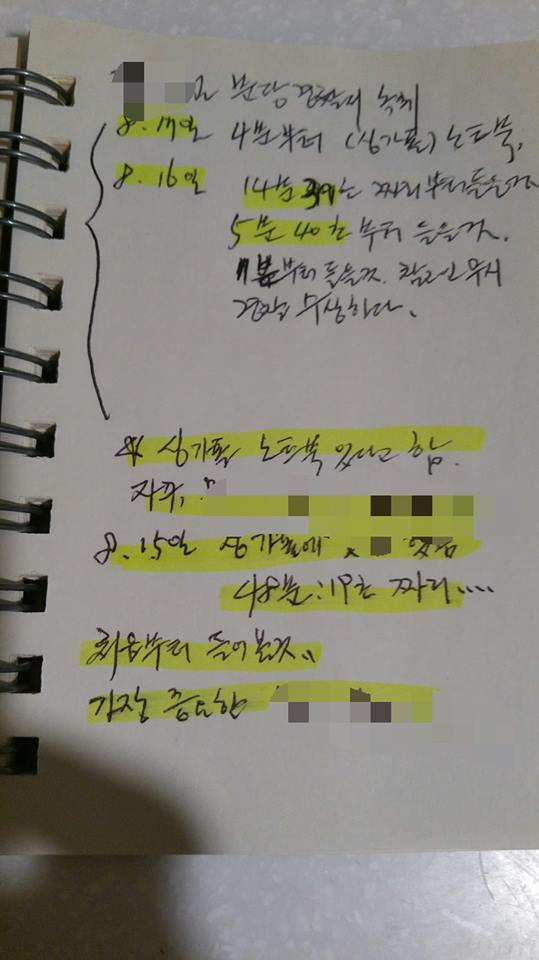 분당경찰서 녹취
8.17일 4분부터 (싱가폴) 노트북,
8.16일 14분39초 짜리부터들을것
5분 40초 부터 들을것.
부터 들을것. 참고인 무시
경찰 수상하다.
싱가폴 노트북 있다고 함.
자꾸,
8.15일 싱가폴에 있음
48분:19초 짜리....
처음부터 들어볼것.,
가장 중요한